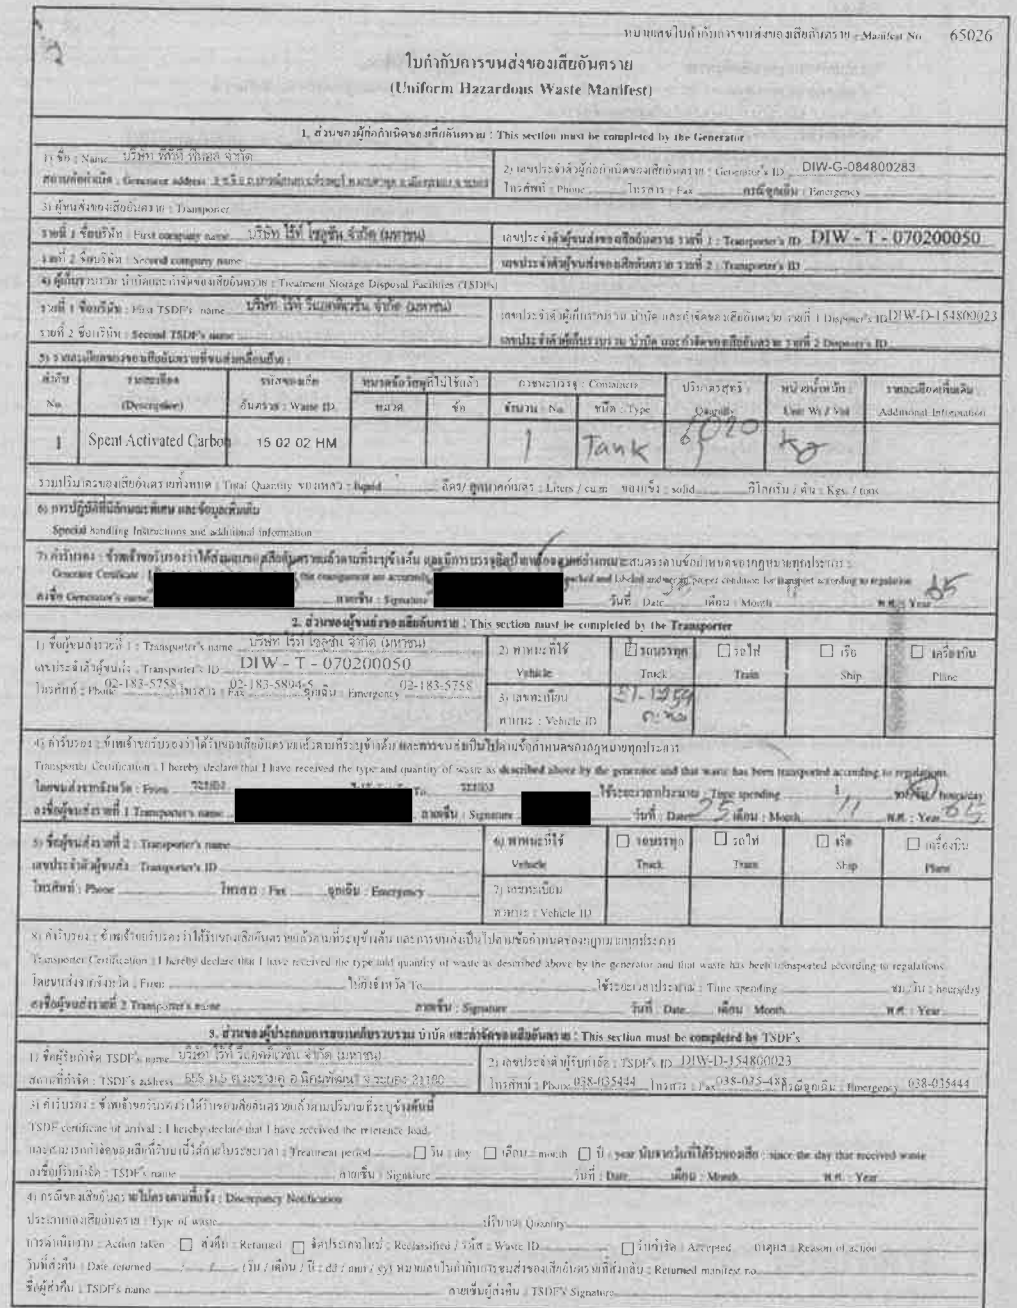 หมายเลขใบกำกับการขนส่งของเสียอันตราย : Manifest No 65026
ใบกำกับการขนส่งของเสียอันตราย
(Uniform Hazardous Waste Manifest)
1. ส่วนของผู้ก่อกำเนิดของเสียอันตราย : This section must be completed by the Generator
1) ชื่อ : Name บริษัท พีทีที ฟีนอล จำกัด
2) เลขประจำตัวผู้ก่อกำเนิดของเสียอันตราย : Generator's ID DIW-G-084800283
สถานที่กำเนิด : Generator address
โทรศัพท์ : Phone โทรสาร : Fax กรณีฉุกเฉิน : Emergency
3) ผู้ขนส่งของเสียอันตราย : Transporter
รายที่ 1 ชื่อบริษัท : First company name บริษัท ไร้ท์ โซลูชั่น จำกัด (มหาชน)
เลขประจำตัวผู้ขนส่งของเสียอันตราย รายที่ 1 : Transporter's ID DIW - T - 070200050
รายที่ 2 ชื่อบริษัท : Second company name
เลขประจำตัวผู้ขนส่งของเสียอันตราย รายที่ 2 : Transporter's ID
4) ผู้เก็บรวบรวม บำบัดและกำจัดของเสียอันตราย : Treatment Storage Disposal Facilities (TSDFs)
รายที่ 1 ชื่อบริษัท : First TSDF's name บริษัท ไร้ท์ รีแอคติเวชั่น จำกัด (มหาชน)
เลขประจำตัวผู้เก็บรวบรวม บำบัด และกำจัดของเสียอันตราย รายที่ 1 Disposer's ID DIW-D-154800023
รายที่ 2 ชื่อบริษัท : Second TSDF's name
เลขประจำตัวผู้เก็บรวบรวม บำบัด และกำจัดของเสียอันตราย รายที่ 2 Disposer's ID
5) รายละเอียดของของเสียอันตรายที่ขนส่งเคลื่อนย้าย :
ลำดับ รายละเอียด รหัสของเสีย หมวดข้อวัสดุที่ไม่ใช้แล้ว ภาชนะบรรจุ : Containers ปริมาตรสุทธิ : หน่วยน้ำหนัก : รายละเอียดเพิ่มเติม :
No. (Description) อันตราย : Waste ID. หมวด ข้อ จำนวน : No. ชนิด : Type Quantity Unit Wt / Vol Additional Information
1 Spent Activated Carbon 15 02 02 HM 1 Tank 6020 kg
รวมปริมาตรของเสียอันตรายทั้งหมด : Total Quantity ของเหลว : liquid ลิตร/ ลูกบาศก์เมตร : Liters / cu.m ของแข็ง : solid กิโลกรัม / ตัน : Kgs. / tons
6) การปฏิบัติที่มีลักษณะพิเศษ และข้อมูลเพิ่มเติม
Special handling Instructions and additional information
7) คำรับรอง : ข้าพเจ้าขอรับรองว่าได้ส่งมอบของเสียอันตรายแล้วตามที่ระบุข้างต้น และมีการบรรจุ ตามข้อกำหนดของกฎหมายทุกประการ :
Generator Certificate : this consignment are accurately packed and labeled and are in proper condition for transport according to regulation
ลงชื่อ Generator's name ลายเซ็น : Signature วันที่ : Date เดือน : Month พ.ศ. : Year 65
2. ส่วนของผู้ขนส่งของเสียอันตราย : This section must be completed by the Transporter
1) ชื่อผู้ขนส่งรายที่ 1 : Transporter's name บริษัท ไร้ท์ โซลูชั่น จำกัด (มหาชน)
เลขประจำตัวผู้ขนส่ง : Transporter's ID DIW - T - 070200050
โทรศัพท์ : Phone 02-183-5758 โทรสาร : Fax 02-183-5894-5 ฉุกเฉิน : Emergency 02-183-5758
2) พาหนะที่ใช้ รถบรรทุก รถไฟ เรือ เครื่องบิน
Vehicle Truck Train Ship Plane
3) เลขทะเบียน
พาหนะ : Vehicle ID
4) คำรับรอง : ข้าพเจ้าขอรับรองว่าได้รับของเสียอันตรายแล้วตามที่ระบุข้างต้น และการขนส่งเป็นไปตามข้อกำหนดของกฎหมายทุกประการ
Transporter Certification : I hereby declare that I have received the type and quantity of waste as described above by the generator and that waste has been transported according to regulations.
โดยขนส่งจากจังหวัด : From ระยอง To ระยอง ใช้ระยะเวลาประมาณ : Time spending 1 ชม/วัน : hours/day
ลงชื่อผู้ขนส่งรายที่ 1 Transporter's name ลายเซ็น : Signature วันที่ : Date 25 เดือน : Month 11 พ.ศ. : Year 65
5) ชื่อผู้ขนส่งรายที่ 2 : Transporter's name
เลขประจำตัวผู้ขนส่ง : Transporter's ID
โทรศัพท์ : Phone โทรสาร : Fax ฉุกเฉิน : Emergency
6) พาหนะที่ใช้ รถบรรทุก รถไฟ เรือ เครื่องบิน
Vehicle Truck Train Ship Plane
7) เลขทะเบียน
พาหนะ : Vehicle ID
8) คำรับรอง : ข้าพเจ้าขอรับรองว่าได้รับของเสียอันตรายแล้วตามที่ระบุข้างต้น และการขนส่งเป็นไปตามข้อกำหนดของกฎหมายทุกประการ
Transporter Certification : I hereby declare that I have received the type and quantity of waste as described above by the generator and that waste has been transported according to regulations.
โดยขนส่งจากจังหวัด : From ไปยังจังหวัด To ใช้ระยะเวลาประมาณ : Time spending ชม/วัน : hours/day
ลงชื่อผู้ขนส่งรายที่ 2 Transporter's name ลายเซ็น : Signature วันที่ : Date เดือน : Month พ.ศ. : Year
3. ส่วนของผู้ประกอบการสถานเก็บรวบรวม บำบัด และกำจัดของเสียอันตราย : This section must be completed by TSDF's
1) ชื่อผู้รับกำจัด TSDF's name บริษัท ไร้ท์ รีแอคติเวชั่น จำกัด (มหาชน)
2) เลขประจำตัวผู้รับกำจัด : TSDF's ID DIW-D-154800023
สถานที่กำจัด : TSDF's address 555 ม.5 ต.มะขามคู่ อ.นิคมพัฒนา จ.ระยอง 21180
โทรศัพท์ : Phone 038-035444 โทรสาร : Fax กรณีฉุกเฉิน : Emergency 038-035444
3) คำรับรอง : ข้าพเจ้าขอรับรองว่าได้รับของเสียอันตรายตามปริมาณที่ระบุข้างต้นนี้
TSDF certificate of arrival : I hereby declare that I have received the reference load.
และสามารถกำจัดของเสียที่รับมานี้ได้ภายในระยะเวลา : Treatment period วัน : day เดือน : month ปี : year นับจากวันที่ได้รับของเสีย : since the day that received waste
ลงชื่อผู้รับกำจัด : TSDF's name ลายเซ็น : Signature วันที่ : Date เดือน : Month พ.ศ. : Year
4) กรณีของเสียอันตรายไม่ตรงตามที่แจ้ง : Discrepancy Notification
ประเภทของเสียอันตราย : Type of waste ปริมาณ Quantity
การดำเนินงาน : Action taken ส่งคืน : Returned จัดประเภทใหม่ : Reclassified / รหัส : Waste ID รับกำจัด : Accepted สาเหตุ : Reason of action
วันที่ส่งคืน : Date returned / / (วัน / เดือน / ปี : dd / mm / yy) หมายเลขใบกำกับการขนส่งของเสียอันตรายที่ส่งกลับ : Returned manifest no
ชื่อผู้ส่งคืน : TSDF's name ลายเซ็นผู้ส่งคืน : TSDF's Signature